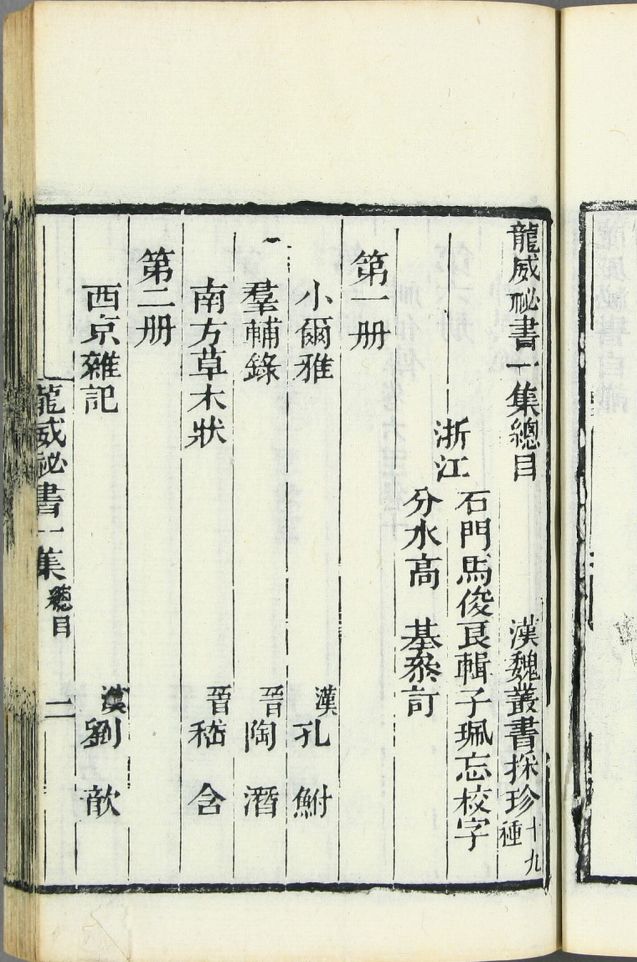 龍威祕書一集總目　漢魏叢書採珍十九種
浙江
石門馬俊良輯子珮忘校字
分水高　基叅訂
第一册
小爾雅　漢孔鮒
羣輔錄　晉陶潛
南方草木狀　晉嵇含
第二册
西京雜記　漢劉歆
龍威祕書一集　總目　二